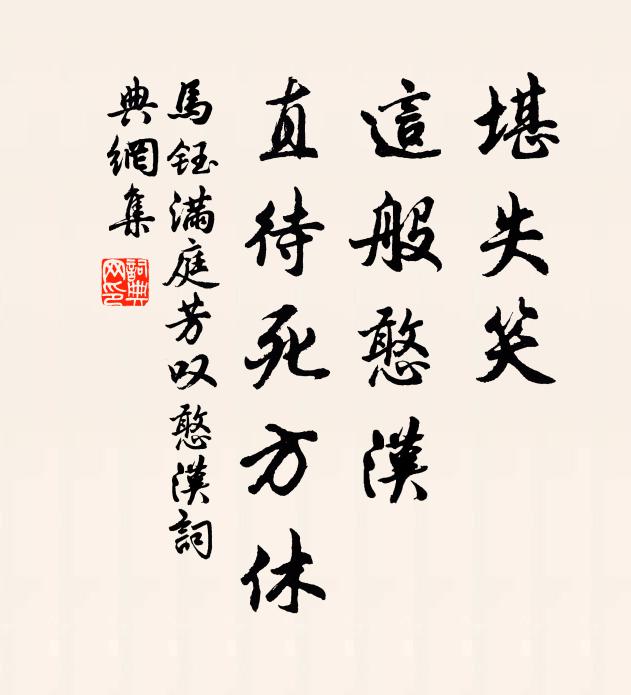 堪失笑
這般憨漢
直待死方休
馬鈺滿庭芳叹憨漢詞
典網集
詞典
网印